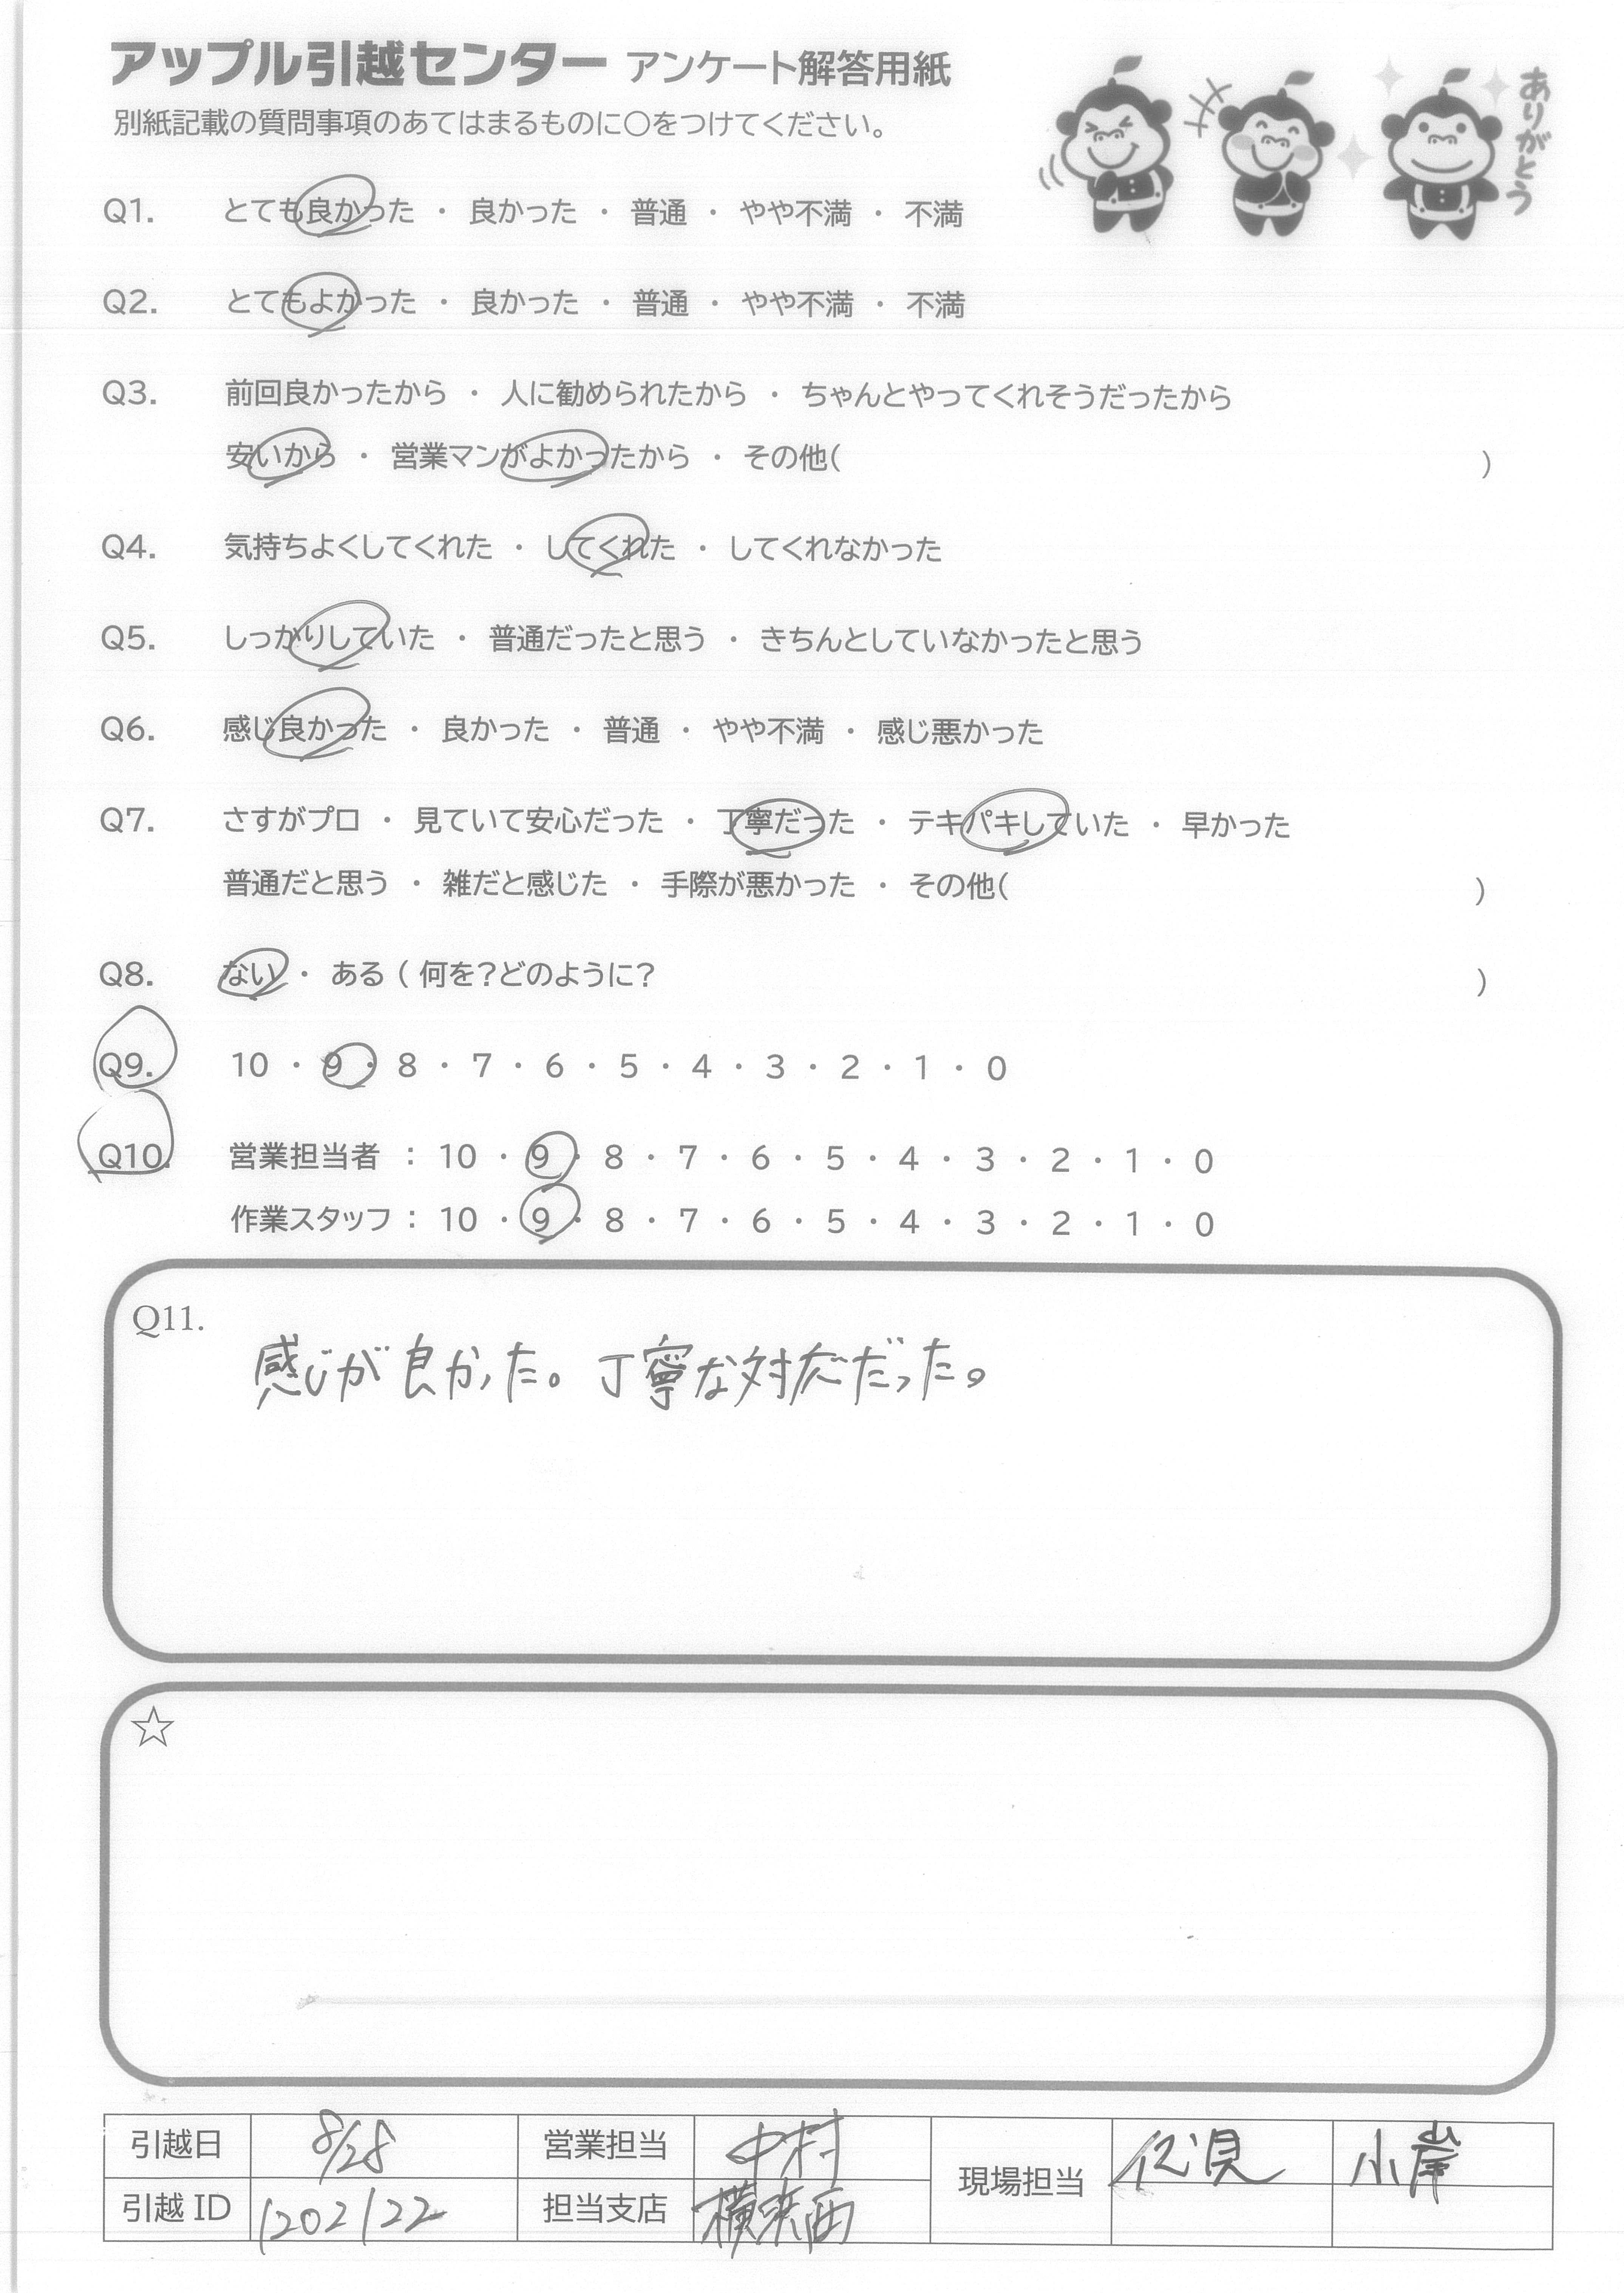 アップル引越センター アンケート解答用紙
別紙記載の質問事項のあてはまるものに○をつけてください。
ありがとう
Q1. とても良かった ・ 良かった ・ 普通 ・ やや不満 ・ 不満
Q2. とてもよかった ・ 良かった ・ 普通 ・ やや不満 ・ 不満
Q3. 前回良かったから ・ 人に勧められたから ・ ちゃんとやってくれそうだったから
安いから ・ 営業マンがよかったから ・ その他( )
Q4. 気持ちよくしてくれた ・ してくれた ・ してくれなかった
Q5. しっかりしていた ・ 普通だったと思う ・ きちんとしていなかったと思う
Q6. 感じ良かった ・ 良かった ・ 普通 ・ やや不満 ・ 感じ悪かった
Q7. さすがプロ ・ 見ていて安心だった ・ 丁寧だった ・ テキパキしていた ・ 早かった
普通だと思う ・ 雑だと感じた ・ 手際が悪かった ・ その他( )
Q8. ない ・ ある ( 何を?どのように? )
Q9. 10 ・ 9 ・ 8 ・ 7 ・ 6 ・ 5 ・ 4 ・ 3 ・ 2 ・ 1 ・ 0
Q10. 営業担当者 : 10 ・ 9 ・ 8 ・ 7 ・ 6 ・ 5 ・ 4 ・ 3 ・ 2 ・ 1 ・ 0
作業スタッフ : 10 ・ 9 ・ 8 ・ 7 ・ 6 ・ 5 ・ 4 ・ 3 ・ 2 ・ 1 ・ 0
Q11.
感じが良かった。丁寧な対応だった。
☆
引越日 8/28 営業担当 中村 現場担当 伏見 小岸
引越 ID 1202122 担当支店 横浜西